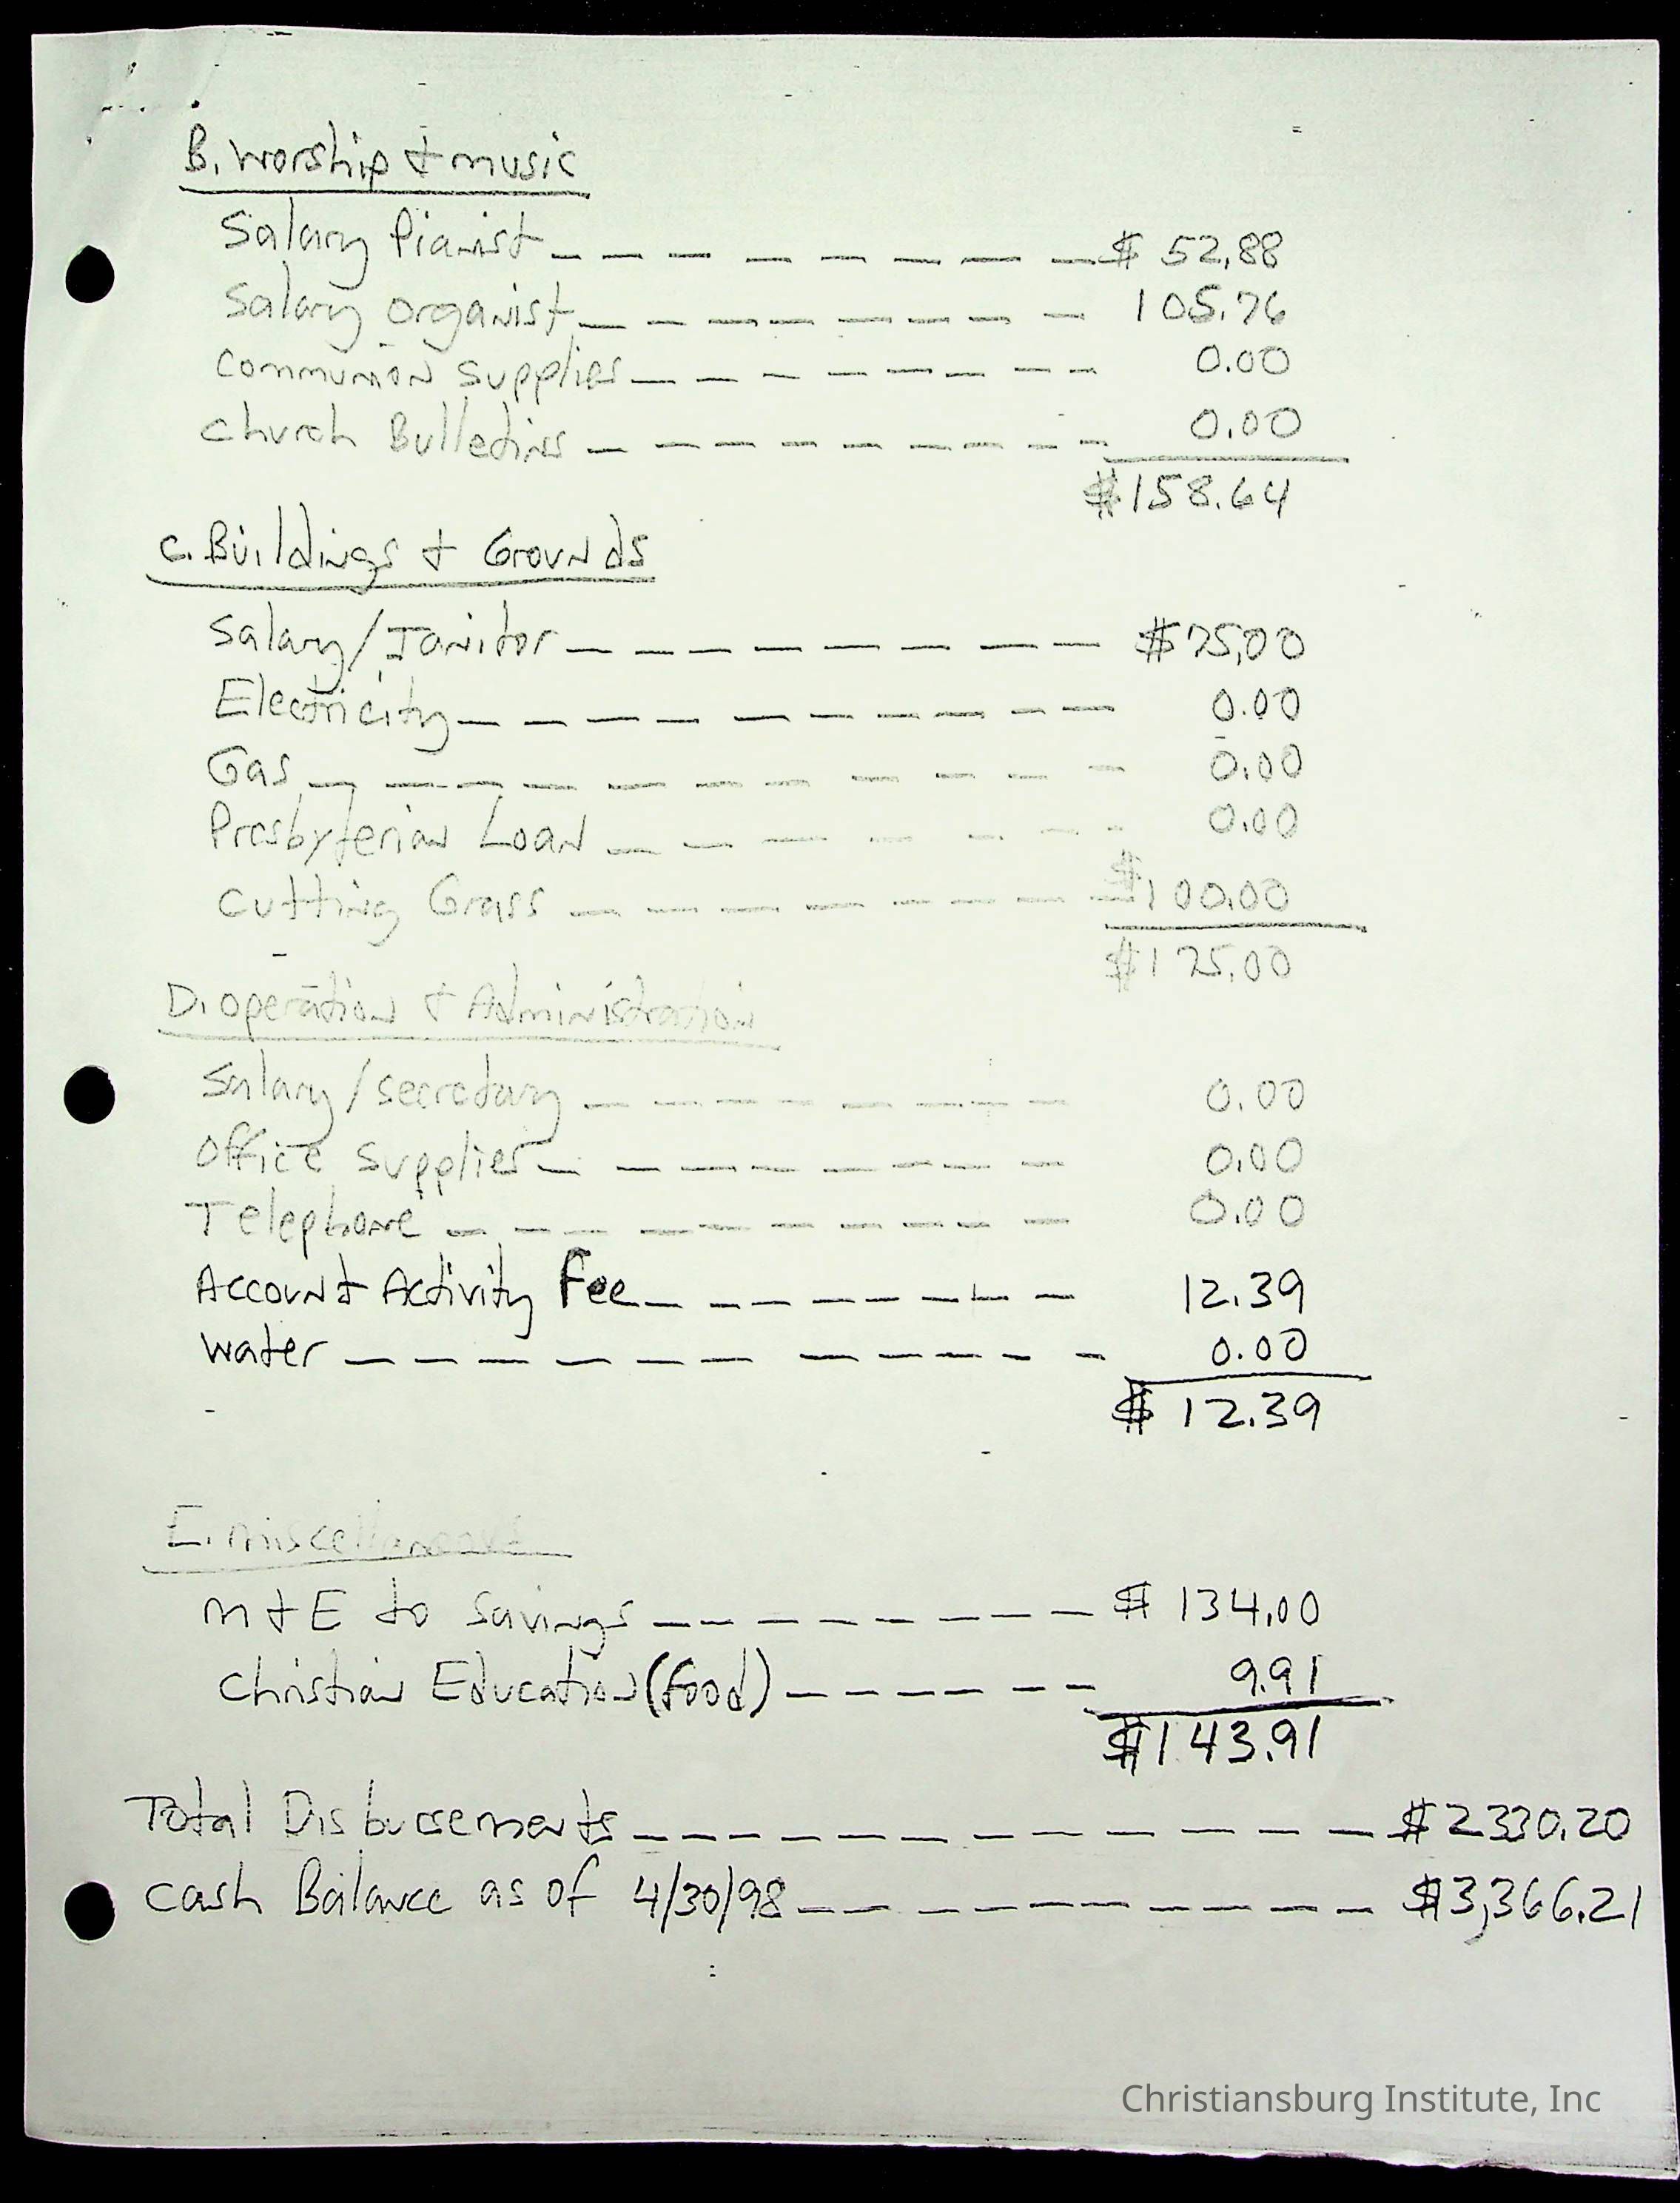 B. Worship & music
Salary Pianist $ 52.88
Salary organist 105.76
Communion supplies 0.00
Church Bulletins 0.00
$158.64
C. Buildings & Grounds
Salary/Janitor $75.00
Electricity 0.00
Gas 0.00
Presbyterian Loan 0.00
Cutting Grass $100.00
$175.00
D. operation & Administration
Salary/secretary 0.00
Office supplies 0.00
Telephone 0.00
Account Activity Fee 12.39
Water 0.00
$ 12.39
E. miscellaneous
M & E to Savings $ 134.00
Christian Education (food) 9.91
$143.91
Total Disbursements $2330.20
Cash Balance as of 4/30/98 $3,366.21
Christiansburg Institute, Inc